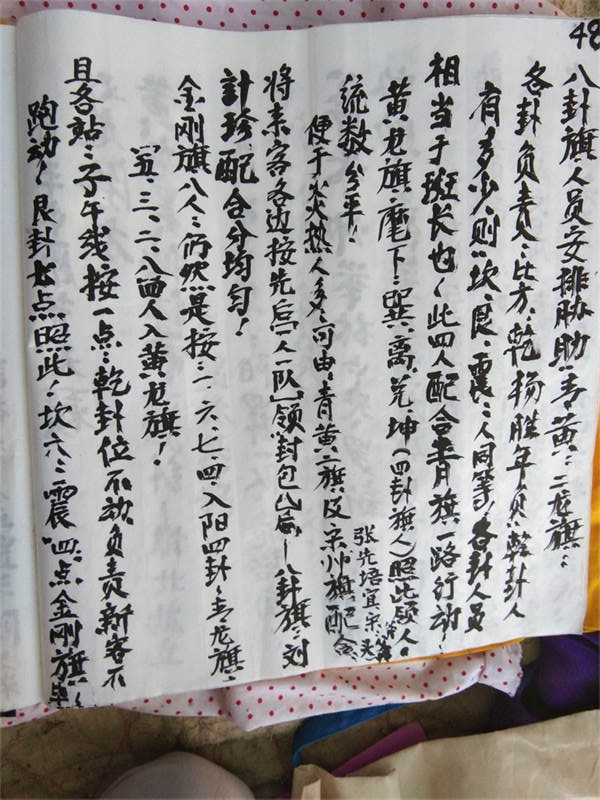 48
八卦旗人员安排胁助:青黄:二龙旗:
各卦负责人:比方:乾 杨胜年负:乾卦人
有多少,则:坎、艮、震:人同等!各卦人员
相当于班长也!此四人配合青旗一路行动!
黄龙旗:麾下:巽、离、兑、坤(四卦旗人)照此领人
统数分平!
张先培宜宗:
便于炎热人多:可由:青黄二旗及宗帅旗配合
将来客各边按先后(一人一队)领封包!后!八卦旗:刘
计珍、配合分均匀!
金刚旗八人:仍然是按:一、六、七、四、入阳四卦!青龙旗、
五、三、二、八四人入黄龙旗!
且各站:子午线按一点:乾卦位不动负责新客不
跑动!艮卦七点照此!坎六:震"四"点金刚旗